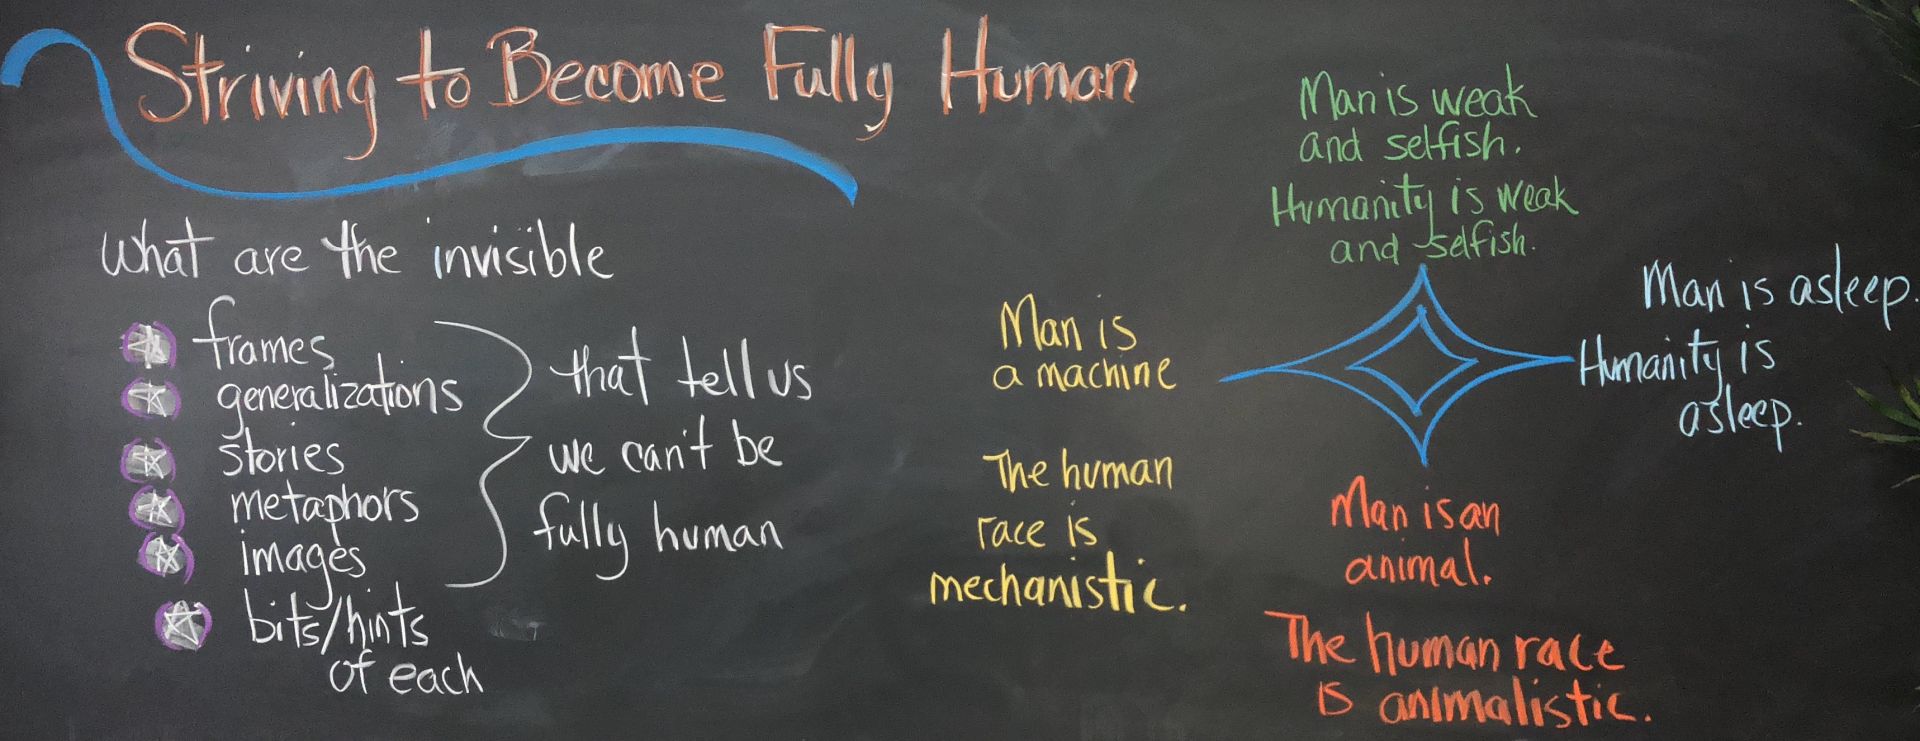 Striving to Become Fully Human
What are the invisible
frames
generalizations
stories
metaphors
images
bits/hints
of each
that tell us
we can't be
fully human
Man is weak
and selfish.
Humanity is weak
and selfish.
Man is
a machine
The human
race is
mechanistic.
Man is asleep.
Humanity is
asleep.
Man is an
animal.
The human race
is animalistic.